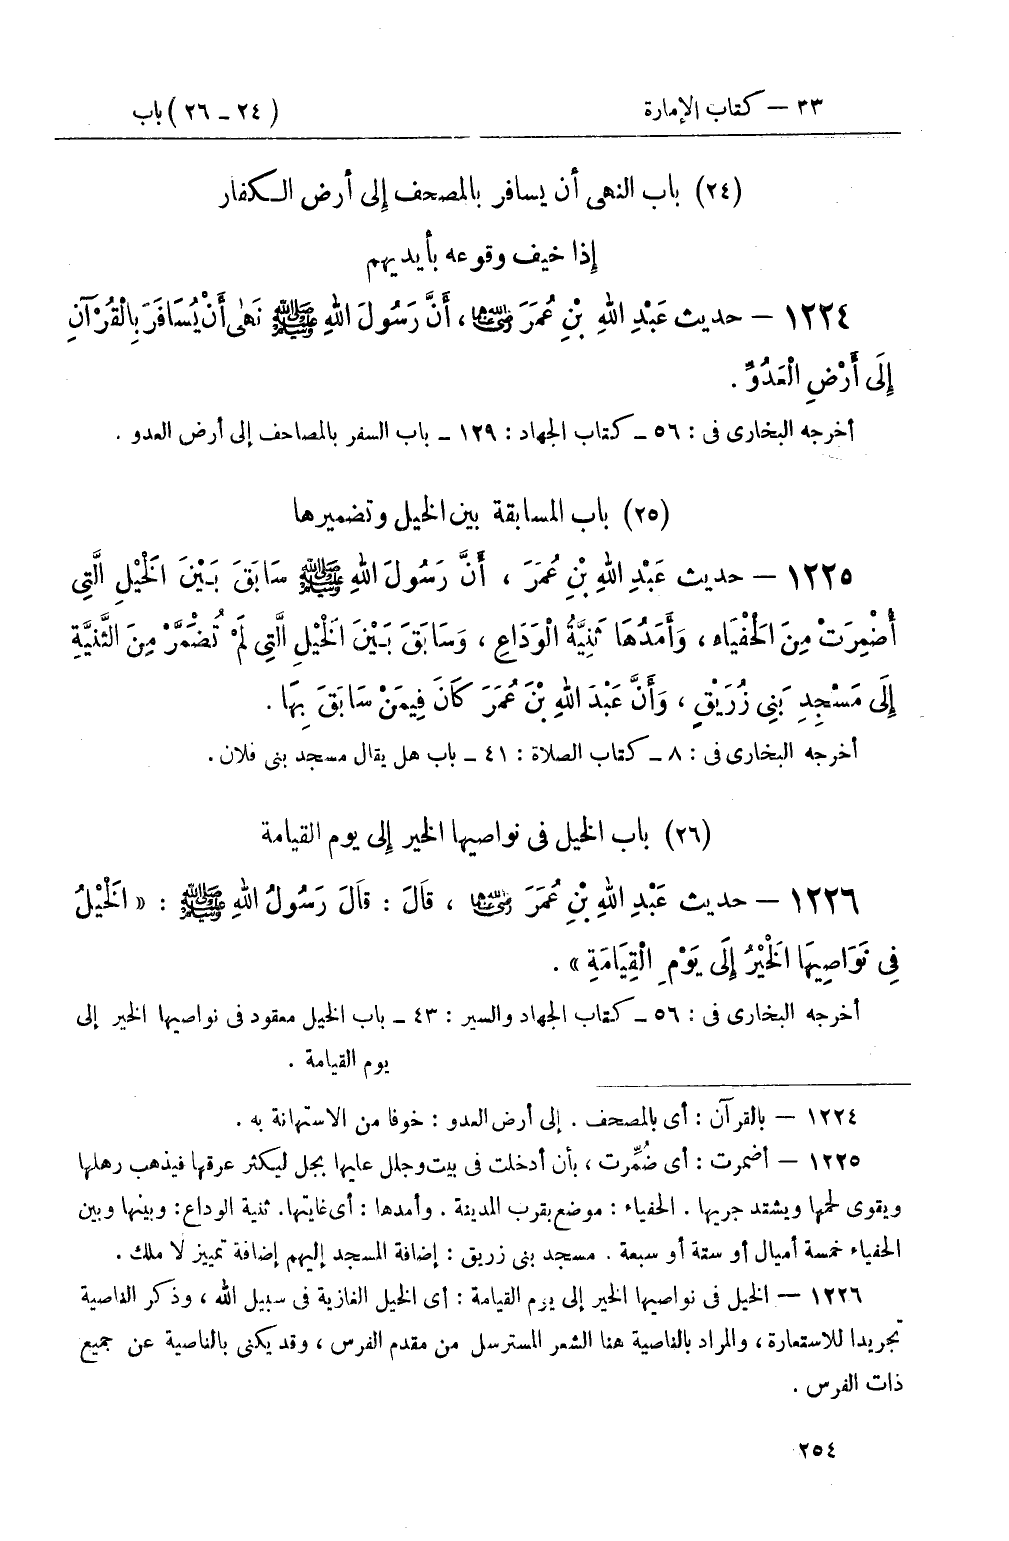 ٣٣ — كتاب الإمارة
(٢٤ ـ ٢٦) باب
(٢٤) باب النهى أن يسافر بالمصحف إلى أرض الكفار
إذا خيف وقوعه بأيديهم
١٢٢٤ — حديث عَبْدِ اللهِ بْنِ عُمَرَ رضي الله عنهما ، أَنَّ رَسُولَ اللهِ ﷺ نَهَى أَنْ يُسَافَرَ بِالْقُرْآنِ
إِلَى أَرْضِ الْعَدُوِّ .
أخرجه البخارى فى : ٥٦ ـ كتاب الجهاد : ١٢٩ ـ باب السفر بالمصاحف إلى أرض العدو .
(٢٥) باب المسابقة بين الخيل وتضميرها
١٢٢٥ — حديث عَبْدِ اللهِ بْنِ عُمَرَ ، أَنَّ رَسُولَ اللهِ ﷺ سَابَقَ بَيْنَ الْخَيْلِ الَّتِي
أُضْمِرَتْ مِنَ الْحَفْيَاء ، وَأَمَدُهَا ثَنِيَّةُ الْوَدَاعِ ، وَسَابَقَ بَيْنَ الْخَيْلِ الَّتِي لَمْ تُضَمَّرْ مِنَ الثَّنِيَّةِ
إِلَى مَسْجِدِ بَنِي زُرَيْقٍ ، وَأَنَّ عَبْدَ اللهِ بْنَ عُمَرَ كَانَ فِيمَنْ سَابَقَ بِهَا .
أخرجه البخارى فى : ٨ ـ كتاب الصلاة : ٤١ ـ باب هل يقال مسجد بنى فلان .
(٢٦) باب الخيل فى نواصيها الخير إلى يوم القيامة
١٢٢٦ — حديث عَبْدِ اللهِ بْنِ عُمَرَ رضي الله عنهما ، قَالَ : قَالَ رَسُولُ اللهِ ﷺ : « الْخَيْلُ
فِي نَوَاصِيهَا الْخَيْرُ إِلَى يَوْمِ الْقِيَامَةِ » .
أخرجه البخارى فى : ٥٦ ـ كتاب الجهاد والسير : ٤٣ ـ باب الخيل معقود فى نواصيها الخير إلى
يوم القيامة .
١٢٢٤ — بالقرآن : أى بالمصحف . إلى أرض العدو : خوفا من الاستهانة به .
١٢٢٥ — أضمرت : أى ضُمِّرت ، بأن أدخلت فى بيت وجلل عليها بجل ليكثر عرقها فيذهب رهلها
ويقوى لحمها ويشتد جريها . الحفياء : موضع بقرب المدينة . وأمدها : أى غايتها. ثنية الوداع: وبينها وبين
الحفياء خمسة أميال أو ستة أو سبعة . مسجد بنى زريق : إضافة المسجد إليهم إضافة تمييز لا ملك .
١٢٢٦ — الخيل فى نواصيها الخير إلى يوم القيامة : أى الخيل الغازية فى سبيل الله ، وذكر الناصية
تجريدا للاستعارة ، والمراد بالناصية هنا الشعر المسترسل من مقدم الفرس ، وقد يكنى بالناصية عن جميع
ذات الفرس .
٢٥٤